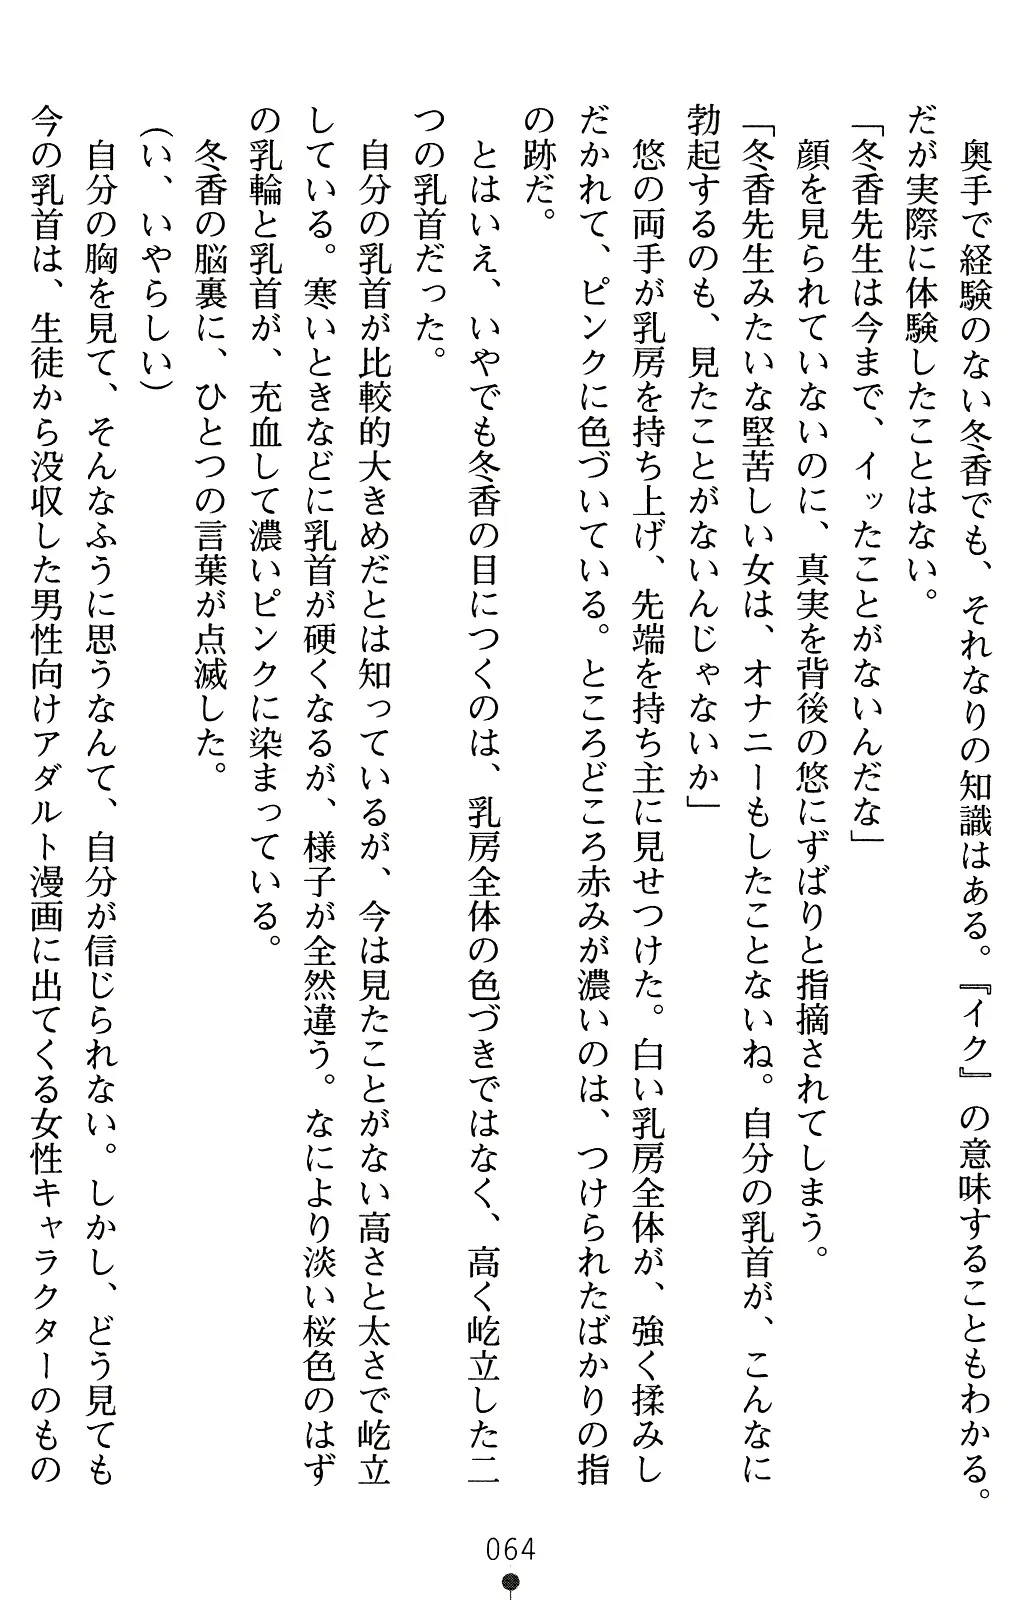 奥手で経験のない冬香でも、それなりの知識はある。『イク』の意味することもわかる。
だが実際に体験したことはない。
「冬香先生は今まで、イッたことがないんだな」
顔を見られていないのに、真実を背後の悠にずばりと指摘されてしまう。
「冬香先生みたいな堅苦しい女は、オナニーもしたことないね。自分の乳首が、こんなに
勃起するのも、見たことがないんじゃないか」
悠の両手が乳房を持ち上げ、先端を持ち主に見せつけた。白い乳房全体が、強く揉みし
だかれて、ピンクに色づいている。ところどころ赤みが濃いのは、つけられたばかりの指
の跡だ。
とはいえ、いやでも冬香の目につくのは、乳房全体の色づきではなく、高く屹立した二
つの乳首だった。
自分の乳首が比較的大きめだとは知っているが、今は見たことがない高さと太さで屹立
している。寒いときなどに乳首が硬くなるが、様子が全然違う。なにより淡い桜色のはず
の乳輪と乳首が、充血して濃いピンクに染まっている。
冬香の脳裏に、ひとつの言葉が点滅した。
(い、いやらしい)
自分の胸を見て、そんなふうに思うなんて、自分が信じられない。しかし、どう見ても
今の乳首は、生徒から没収した男性向けアダルト漫画に出てくる女性キャラクターのもの
064